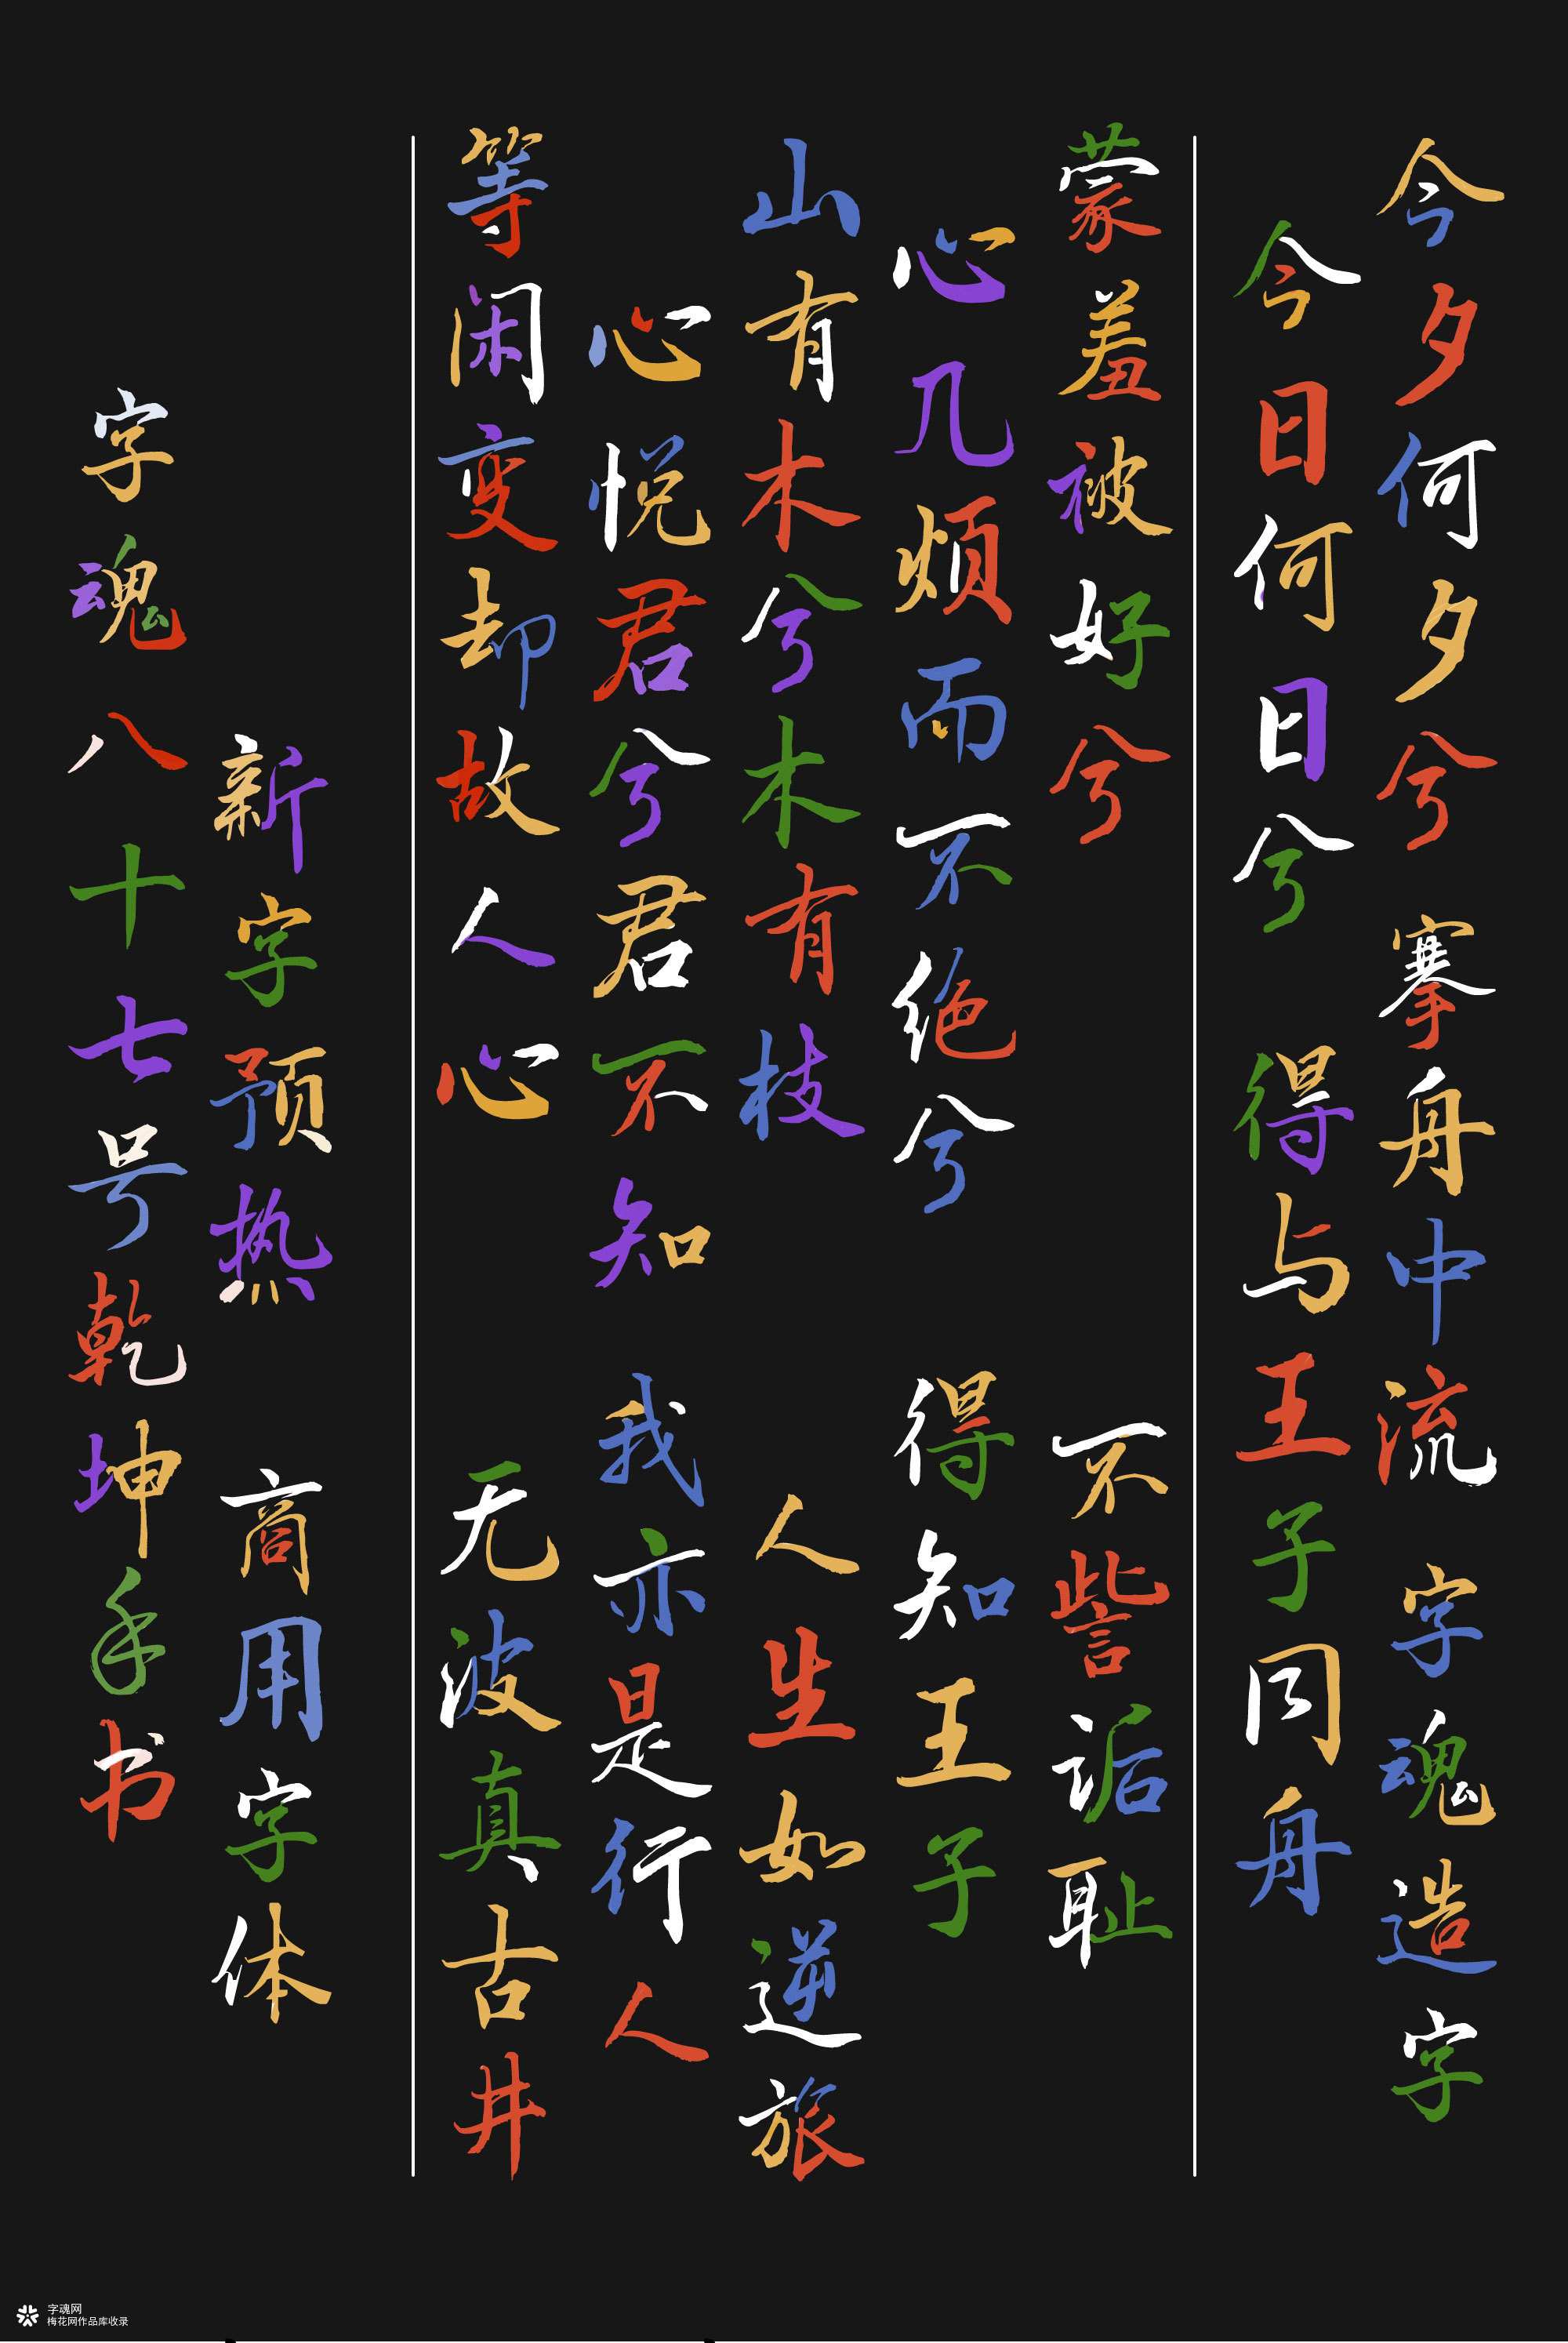 今夕何夕兮 搴舟中流 字魂造字
今日何日兮 得与王子同舟
蒙羞被好兮 不訾诟耻
心几烦而不绝兮 得知王子
山有木兮木有枝 人生如逆旅
心悦君兮君不知 我亦是行人
等闲变却故人心 无波真古井
新字预热 商用字体
字魂八十七号乾坤手书
字魂网
梅花网作品库收录